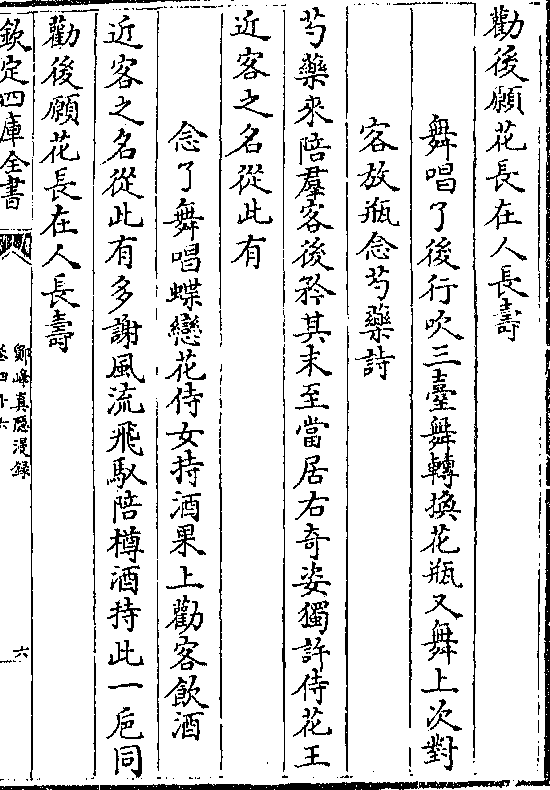 勸後願花長在人長壽
舞唱了後行吹三臺舞轉換花瓶又舞上次對
客放瓶念芍藥詩
芍藥來陪羣客後矜其末至當居右奇姿獨許侍花王
近客之名從此有
念了舞唱蝶戀花侍女持酒果上勸客飲酒
近客之名從此有多謝風流飛馭陪樽酒持此一巵同
勸後願花長在人長壽
欽定四庫全書
鄮峰真隱漫錄
卷四十六
六